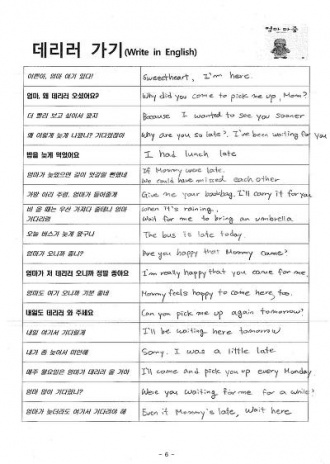 엄마 마중
데리러 가기 (Write in English)
엄마 여기 있다!
Sweetheart, I'm here.
엄마, 왜 데리러 오셨어요?
Why did you come to pick me up, Mom?
더 빨리 보고 싶어서 왔지
Because I wanted to see you sooner
왜 이렇게 늦게 나왔니? 기다렸잖아
Why are you so late? I've been waiting for you
밥을 늦게 먹었어요
I had lunch late
엄마가 늦었으면 길이 엇갈릴 뻔했네
If Mommy were late, We could have missed each other
가방 이리 주렴, 엄마가 들어줄게
Give me your backbag. I'll carry it for you
비 올 때는 우산 가져다 줄테니 엄마 기다리렴
When it's raining, Wait for me to bring an umbrella
오늘 버스가 늦게 왔구나
The bus is late today
엄마가 오니까 좋니?
Are you happy that Mommy came?
엄마가 저 데리러 오니까 정말 좋아요
I'm really happy that you came for me
엄마도 여기 오니까 기분 좋네
Mommy feels happy to come here, too.
내일도 데리러 와 주세요
Can you pick me up again tomorrow?
내일 여기서 기다릴게
I'll be waiting here tomorrow
내가 좀 늦어서 미안해
Sorry. I was a little late
매주 월요일은 엄마가 데리러 올 거야
I'll come and pick you up every Monday
엄마 많이 기다렸니?
Were you waiting for me for a while?
엄마가 늦더라도 여기서 기다려야 해
Even if Mommy's late, Wait here
- 6 -